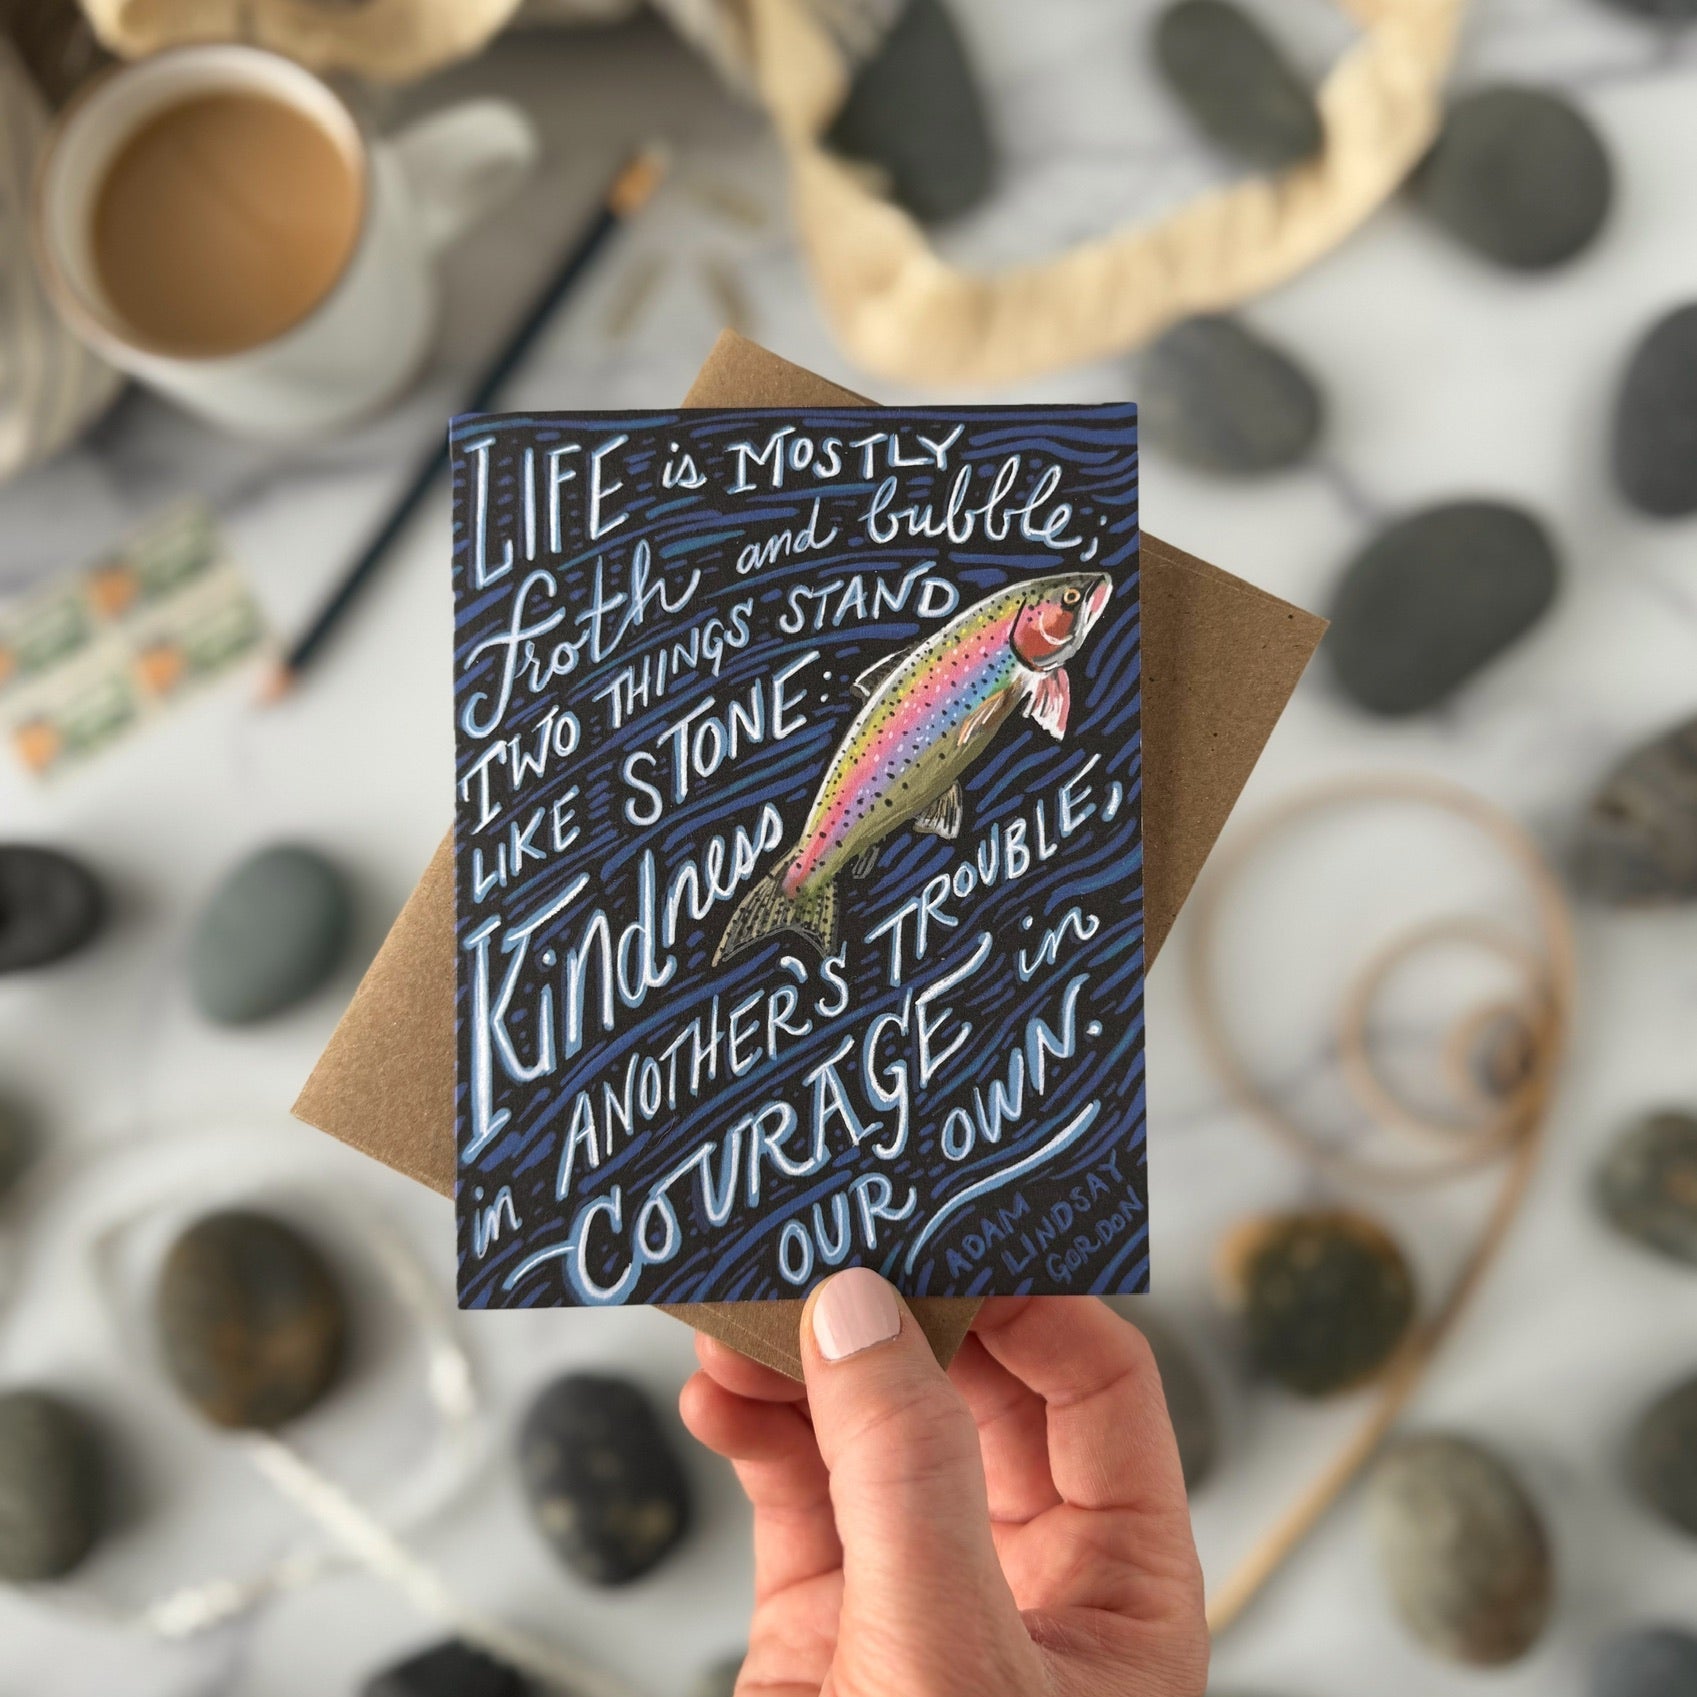 LIFE is MOSTLY
froth and bubble;
TWO THINGS STAND
LIKE STONE:
Kindness
in ANOTHER'S TROUBLE,
COURAGE in
OUR OWN.
ADAM
LINDSAY
GORDON